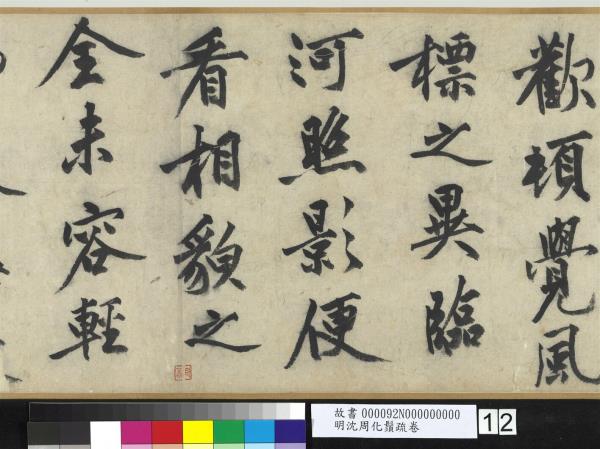 歡頓覺風
標之異臨
河照影便
看相貌之
全未容輕
故書 000092N000000000
明沈周化鬚疏卷
12